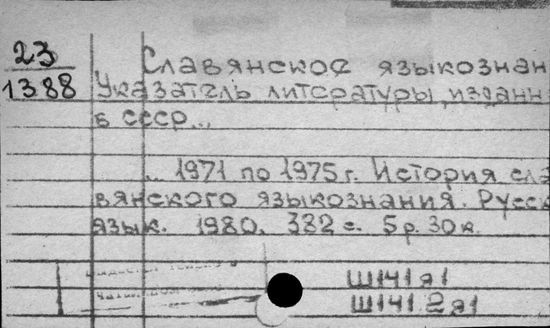 23
1388
Славянское языкознан
Указатель литературы, изданн
в СССР...
... 1971 по 1975 г. История сла
вянского языкознания. Русск
язык. 1980. 382 с. 5 р. 30 к.
Ш141я1
Ш141.2я1